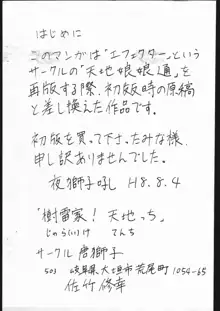 はじめに
このマンガは「エフェクター」という
サークルの「天地娘娘1通」を
再版する際、初版時の原稿
と差し換えた作品です。
初版を買って下さったみな様、
申し訳ありませんでした。
夜獅子吼 H8.8.4
「樹雷家！天地っち」
じゅらい け てんち
サークル唐獅子
503 岐阜県大垣市荒尾町1054-65
佐竹修幸